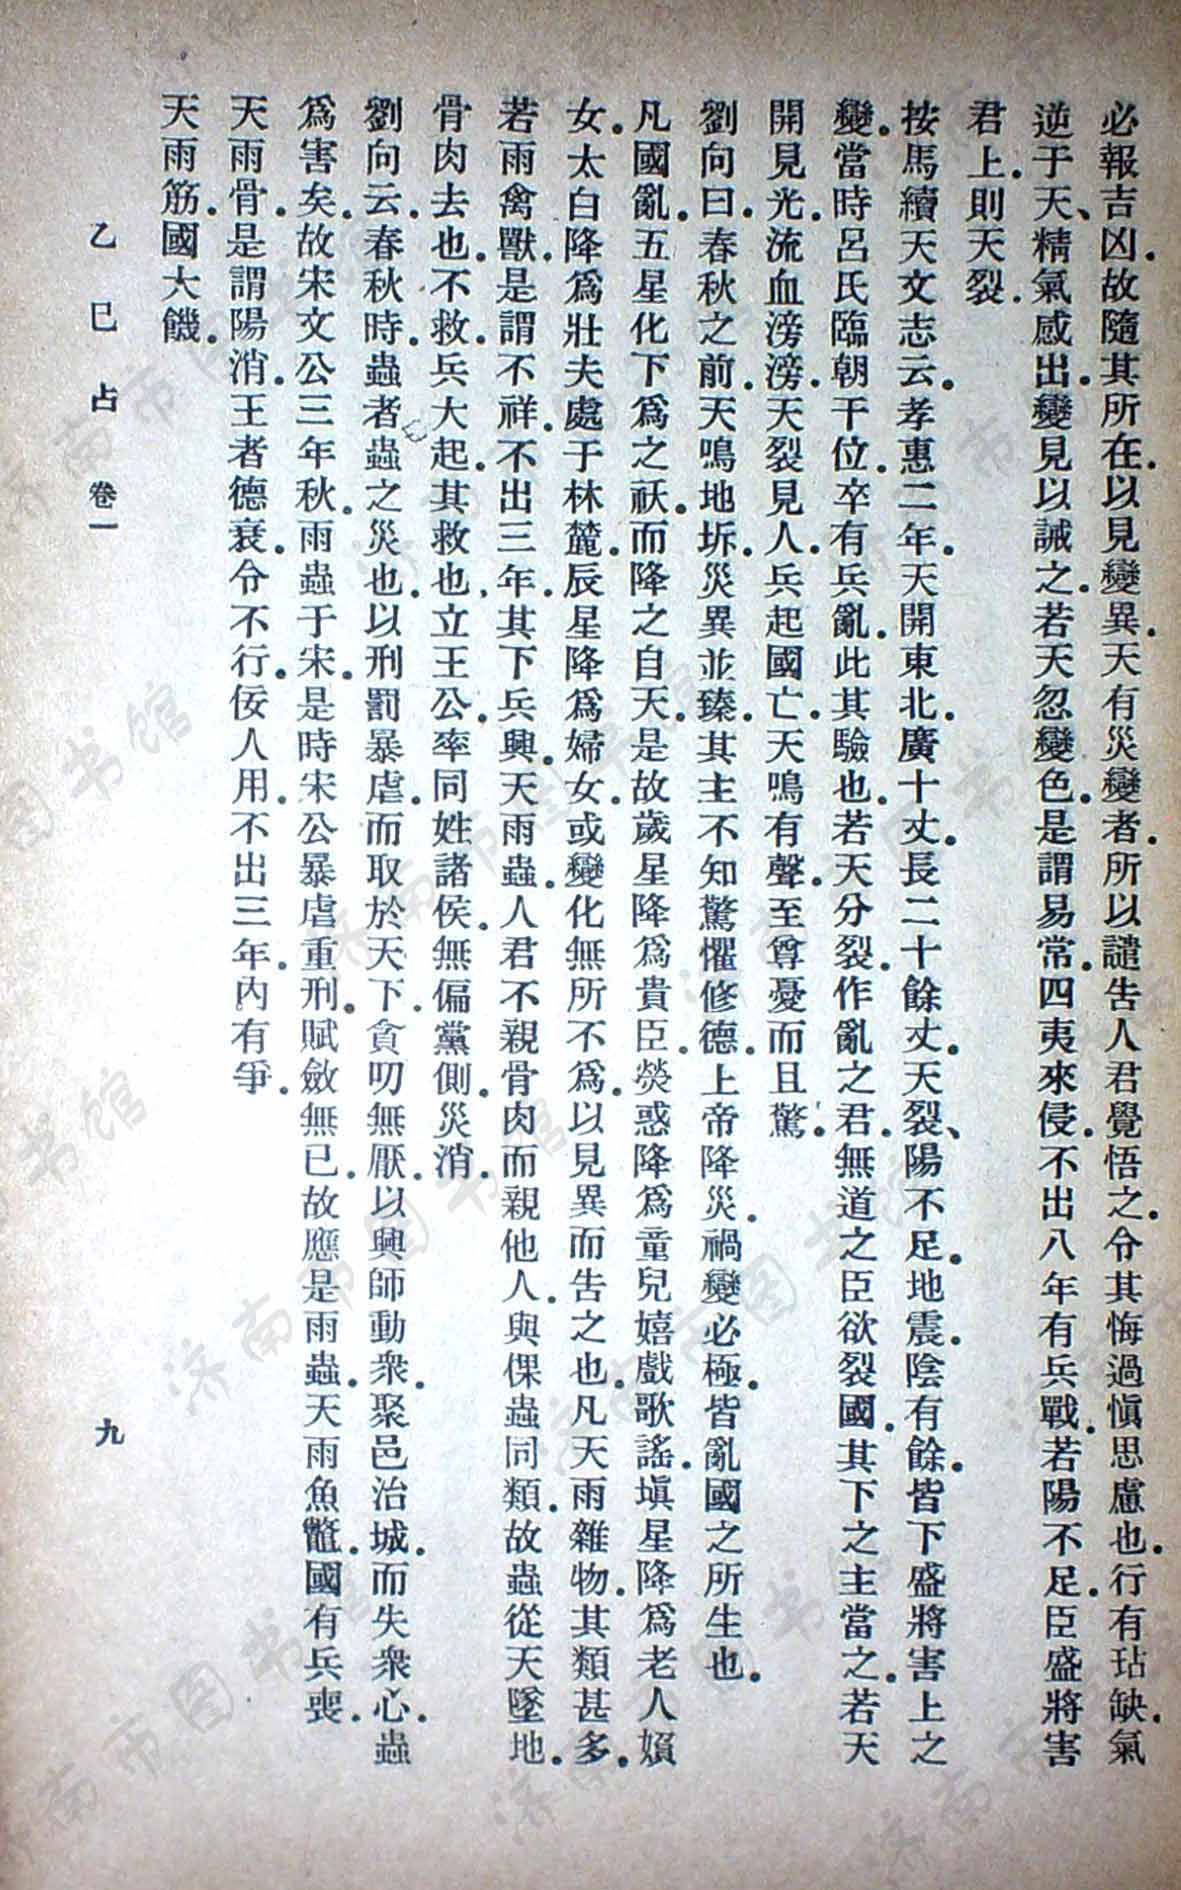 必報吉凶.故隨其所在.以見變異.天有災變者.所以譴告人君覺悟之.令其悔過愼思慮也.行有玷缺.氣
逆于天、精氣感出.變見以誡之.若天忽變色.是謂易常.四夷來侵.不出八年有兵戰.若陽不足.臣盛將害
君上.則天裂.
按馬續天文志云.孝惠二年.天開東北.廣十丈.長二十餘丈.天裂、陽不足.地震.陰有餘.皆下盛將害上之
變.當時呂氏臨朝干位.卒有兵亂.此其驗也.若天分裂.作亂之君.無道之臣欲裂國.其下之主當之.若天
開見光.流血滂滂.天裂見人.兵起國亡.天鳴有聲.至尊憂而且驚.
劉向曰.春秋之前.天鳴地坼.災異並臻.其主不知驚懼修德.上帝降災.禍變必極.皆亂國之所生也.
凡國亂.五星化下爲之祆.而降之自天.是故歲星降爲貴臣.熒惑降爲童兒嬉戲歌謠.塡星降爲老人嬪
女.太白降爲壯夫處于林麓.辰星降爲婦女.或變化無所不爲.以見異而告之也.凡天雨雜物.其類甚多.
若雨禽獸.是謂不祥.不出三年.其下兵興.天雨蟲.人君不親骨肉而親他人.與倮蟲同類.故蟲從天墜地.
骨肉去也.不救.兵大起.其救也.立王公.率同姓諸侯.無偏黨側.災消.
劉向云.春秋時.蟲者蟲之災也.以刑罰暴虐.而取於天下.貪叨無厭.以興師動衆.聚邑治城.而失衆心.蟲
爲害矣.故宋文公三年秋.雨蟲于宋.是時宋公暴虐重刑.賦斂無已.故應是雨蟲.天雨魚鼈.國有兵喪.
天雨骨.是謂陽消.王者德衰.令不行.佞人用.不出三年.內有爭.
天雨筋.國大饑.
乙巳占 卷一 九
济南市图书馆